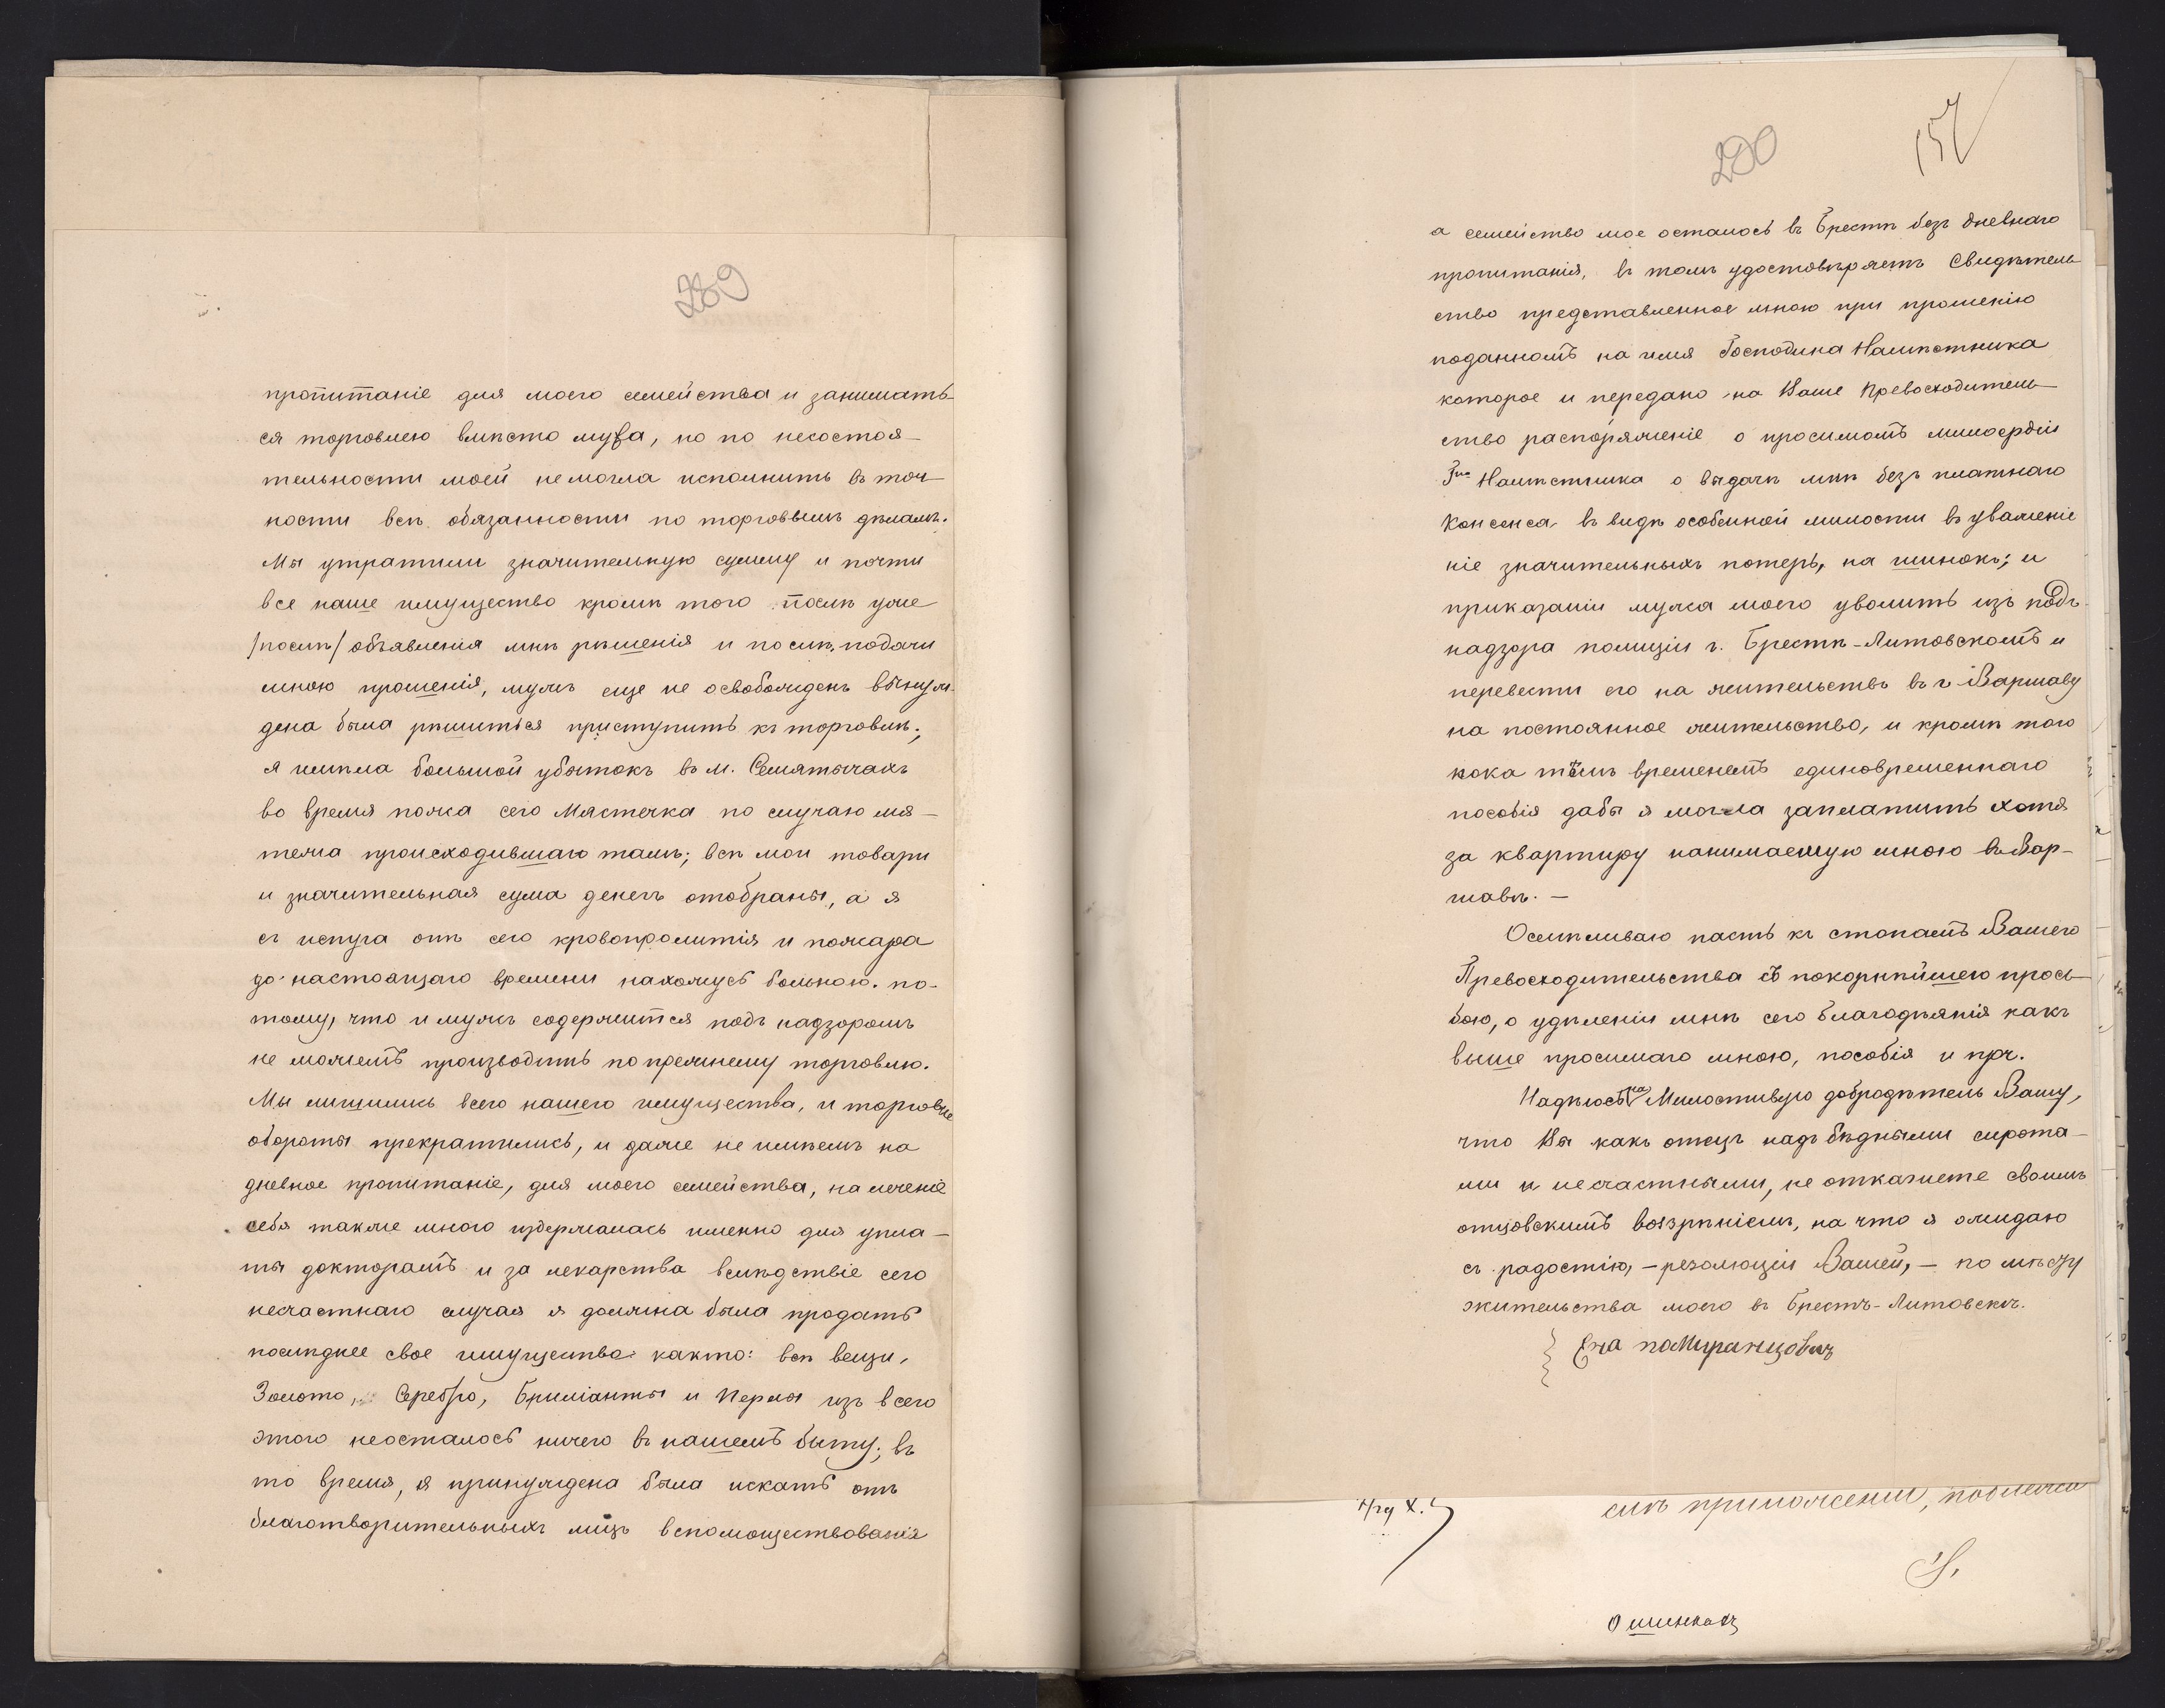 289
пропитаніе для моего семейства и занимать-
ся торговлею вмѣсто мужа, но по несостоя-
тельности моей не могла исполнить въ точ-
ности всѣ обязанности по торговымъ дѣламъ.
Мы утратили значительную сумму и почти
все наше имущество кромѣ того послѣ уже
/послѣ/ объявления мнѣ рѣшенія и послѣ подачи
мною прошенія, мужъ еще не освобожденъ вынуж-
дена была рѣшиться приступить къ торговлѣ;
я имѣла большой убытокъ въ м. Семятычахъ
во время пожа сего Мястечка по случаю мя-
тежа происходившаго тамъ; всѣ мои товари
и значительная сума денегъ отобраны, а я
съ испуга отъ сего кровопролитія и пожара
до настоящаго времени нахожусь больною. по-
тому, что и мужъ содержится подъ надзоромъ
не можетъ производить по прежнему торговлю.
Мы лишились всего нашего имущества, и торговые
обороты прекратились, и даже не имѣемъ на
дневное пропитаніе, для моего семейства, на леченіе
себя также много издержалась именно для упла-
ты докторамъ и за лекарства вслѣдствіе сего
несчастнаго случая я должна была продать
послѣднее свое имущество както: всѣ вещи,
Золото, Серебро, Брилианты и Перлы изъ всего
этого неосталось ничего въ нашемъ быту; въ
то время, я принуждена была искать отъ
благотворительныхъ лицъ вспомоществованія
290
157
а семейство мое осталось въ Брестѣ безъ дневнаго
пропитанія, въ томъ удостовѣряетъ Свидѣтель-
ство представленное мною при прошенію
поданномъ на имя Господина Намѣстника
которое и передано на Ваше Превосходитель-
ство распоряженіе о просимомъ милосердіи
Гна Намѣстника о выдачѣ мнѣ безъ платнаго
Консенса въ видѣ особенной милости въ уваженіе
ніе значительныхъ потерь, на шинокъ; и
приказаніи мужа моего уволить изъ подъ
надзора полиціи г. Брестѣ-Литовскомъ и
перевести его на жительствъ въ г Варшаву
на постоянное жительство, и кромѣ того
пока тѣмъ временемъ единовременнаго
пособія дабы я могла заплатить хотя
за квартиру нанимаемую мною въ Вар-
шавѣ. —
Осмѣливаю пасть къ стопамъ Вашего
Превосходительства съ покорнѣйшею прось-
бою, о удѣленіи мнѣ сего благодѣянія какъ
выше просимаго мною, пособія и прч.
Надѣюсь на Милостивую добродѣтель Вашу,
что Вы какъ отецъ надъ бѣдными сирота-
ми и несчастными, не откажете своимъ
отцовскимъ воззрѣніемъ, на что я ожидаю
съ радостію, — резолюціи Вашей, — по мѣсту
жительства моего въ Брестѣ-Литовскѣ.
приложеніи,
О шинкахъ